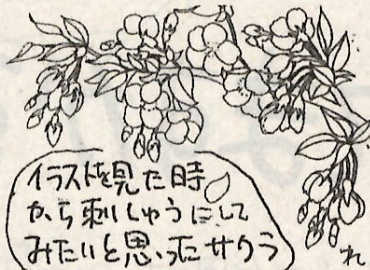 イラストを見た時
から刺しゅうにして
みたいと思ったサクラ
れ